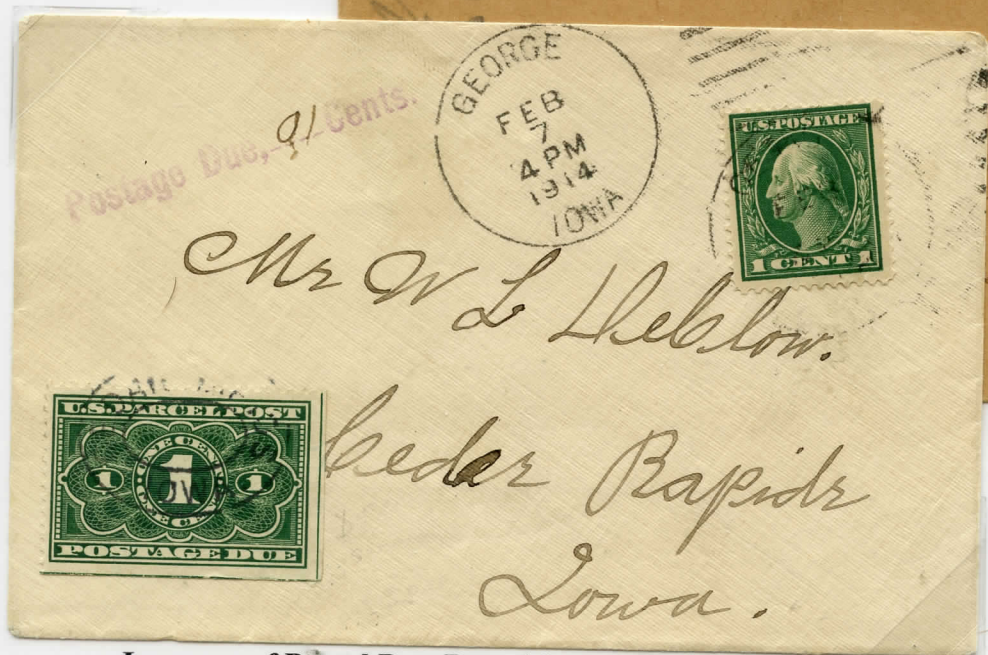 Postage Due, 01 Cents.
GEORGE
FEB
7
4 PM
1914
IOWA
U.S. POSTAGE
1 CENT 1
Mr W L
Cedar Rapids
Iowa.
U.S. PARCEL POST
ONE CENT
1 1 1
ONE CENT
POSTAGE DUE